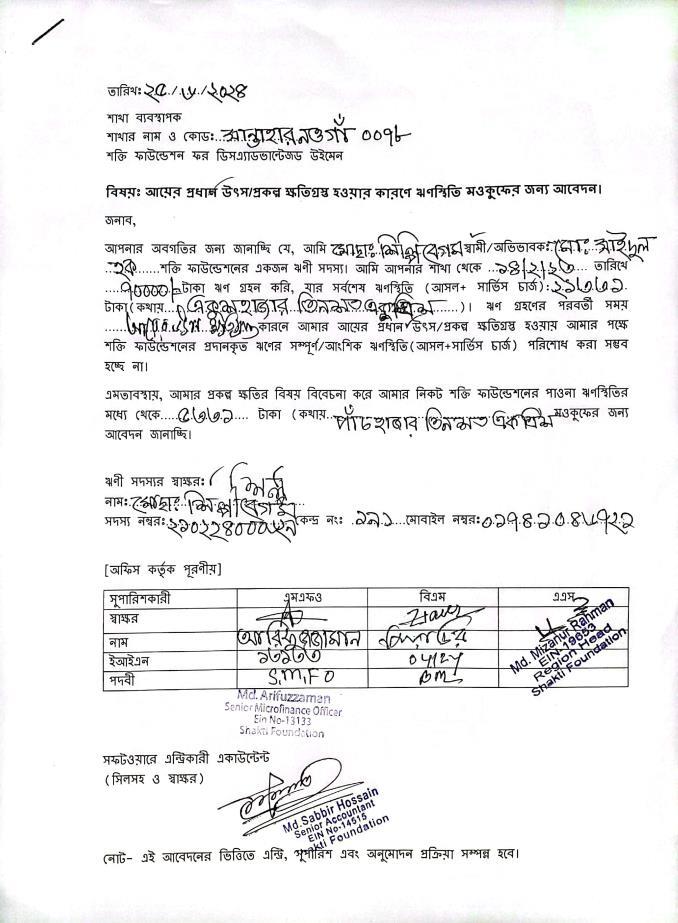 তারিখঃ ২৫/৬/২০২৪
শাখা ব্যবস্থাপক
শাখার নাম ও কোডঃ.. সান্তাহার নওগাঁ ০০৭৮
শক্তি ফাউন্ডেশন ফর ডিসএ্যাডভান্টেজড উইমেন
বিষয়ঃ আয়ের প্রধান উৎস/প্রকল্প ক্ষতিগ্রস্থ হওয়ার কারণে ঋণস্থিতি মওকুফের জন্য আবেদন।
জনাব,
আপনার অবগতির জন্য জানাচ্ছি যে, আমি মোছাঃ শিল্পি বেগম স্বামী/অভিভাবকঃ মোঃ সাইদুল
হক......শক্তি ফাউন্ডেশনের একজন ঋণী সদস্য। আমি আপনার শাখা থেকে তারিখে
টাকা ঋণ গ্রহন করি, যার সর্বশেষ ঋণস্থিতি (আসল+ সার্ভিস চার্জ): ২১৩৩১
টাকা(কথায় একুশ হাজার তিনশত একত্রিশ......)। ঋণ গ্রহণের পরবর্তী সময়
কারনে আমার আয়ের প্রধান উৎস/প্রকল্প ক্ষতিগ্রস্থ হওয়ায় আমার পক্ষে
শক্তি ফাউন্ডেশনের প্রদানকৃত ঋণের সম্পূর্ণ/আংশিক ঋণস্থিতি(আসল+সার্ভিস চার্জ) পরিশোধ করা সম্ভব
হচ্ছে না।
এমতাবস্থায়, আমার প্রকল্প ক্ষতির বিষয় বিবেচনা করে আমার নিকট শক্তি ফাউন্ডেশনের পাওনা ঋণস্থিতির
মধ্যে থেকে.... ৫৩৩১.... টাকা (কথায়.. পাঁচ হাজার তিনশত একত্রিশ মওকুফের জন্য
আবেদন জানাচ্ছি।
ঋণী সদস্যর স্বাক্ষরঃ শিল্পি
নামঃ মোছাঃ শিল্পি বেগম
সদস্য নম্বরঃ কেন্দ্র নংঃ .১৯১....মোবাইল নম্বরঃ
[অফিস কর্তৃক পূরণীয়]
সুপারিশকারী এমএফও বিএম এএস
স্বাক্ষর
নাম আরিফুজ্জামান
ইআইএন ০৮১২৭
পদবী S.M.F.O BM
Md. Mizanur Rahman
EIN-19653
Region Head
Shakti Foundation
Md. Arifuzzaman
Senior Microfinance Officer
Ein No-13133
Shakti Foundation
সফটওয়ারে এন্ট্রিকারী একাউন্টেন্ট
(সিলসহ ও স্বাক্ষর)
Md.Sabbir Hossain
Senior Accountant
EIN No-14515
Shakti Foundation
নোট- এই আবেদনের ভিত্তিতে এন্ট্রি, সুপারিশ এবং অনুমোদন প্রক্রিয়া সম্পন্ন হবে।